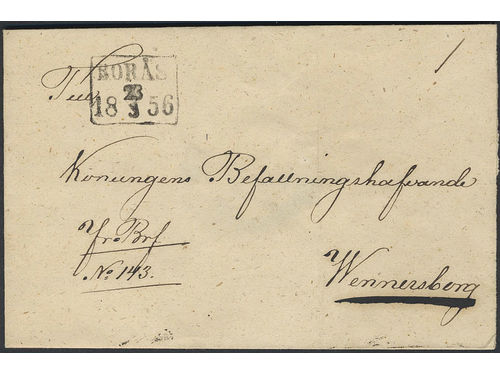 BORÅS
23
18 3 56
Till
1
Konungens Befallningshafvande
Fr. Brf
No. 143.
Wennersborg